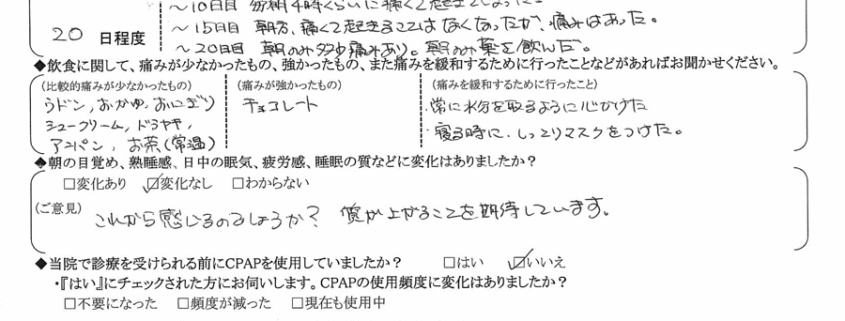 ~10日目 明朝4時くらいに痛くて起きてしまった。
~15日目 朝方、痛くて起きることはなくなったが、痛みはあった。
20 日程度
~20日目 朝のみ多少痛みあり。朝のみ薬を飲んだ。
◆飲食に関して、痛みが少なかったもの、強かったもの、また痛みを緩和するために行ったことなどがあればお聞かせください。
(比較的痛みが少なかったもの) (痛みが強かったもの) (痛みを緩和するために行ったこと)
うドン, おかゆ, おにぎり チョコレート ・常に水分を取るように心がけた
シュークリーム, ドラヤキ, ・寝る時に、しっとりマスクをつけた。
アンパン, お茶(常温)
◆朝の目覚め、熟睡感、日中の眠気、疲労感、睡眠の質などに変化はありましたか?
□変化あり ☑変化なし □わからない
(ご意見) これから感じるのでしょうか? 質が上がることを期待しています。
◆当院で診療を受けられる前にCPAPを使用していましたか? □はい ☑いいえ
・『はい』にチェックされた方にお伺いします。CPAPの使用頻度に変化はありましたか?
□不要になった □頻度が減った □現在も使用中